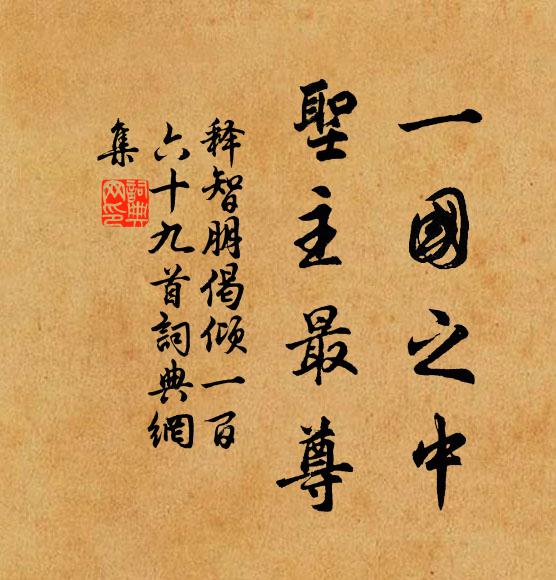 一國之中
聖主最尊
释智朋偈倾一百
六十九首詞典網
集
詞典
网印